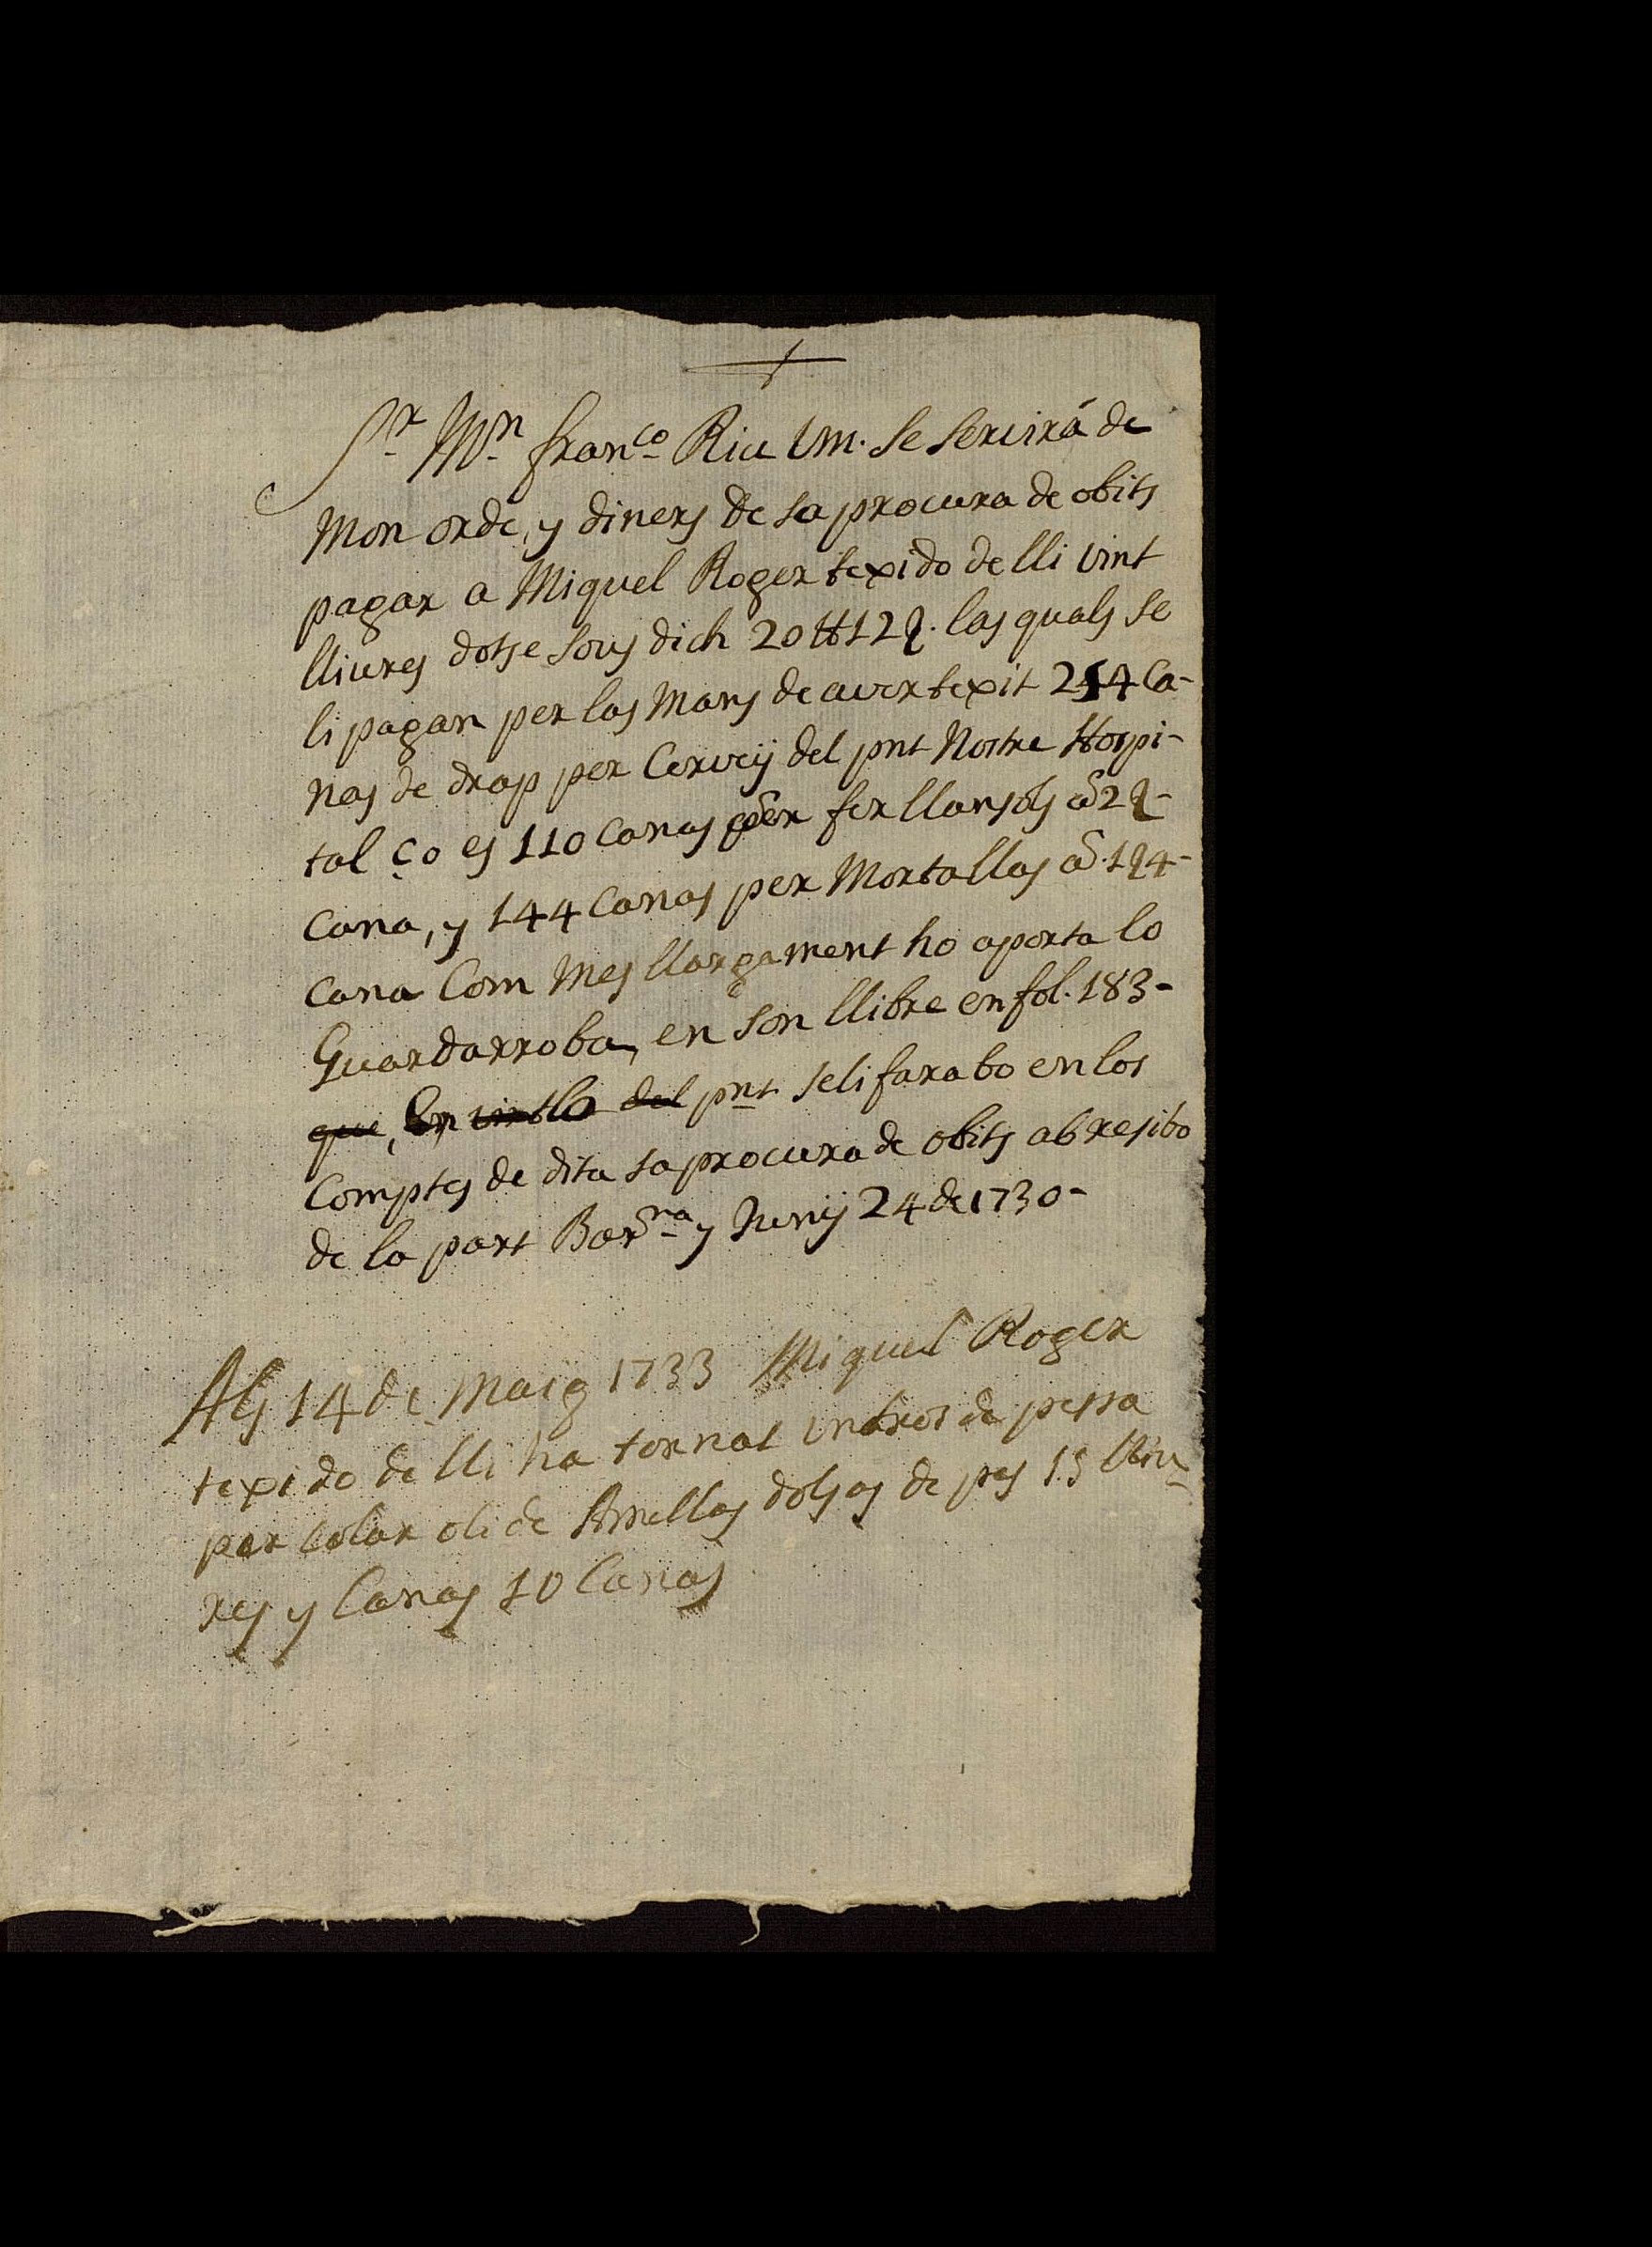 Sr. Mn. Franco. Riu Vm. se servirá de
Mon orde, y diners de sa procura de obits
pagar a Miquel Roger texido de lli vint
lliures dotse sous dich 20 ℔ 12 ẞ. las quals se
li pagan per las Mans de aver texit 254 Ca-
nas de drap per Cerveij del pnt Nostre Hospi-
tal ço es 110 Canas per fer llansols a 2 ẞ-
Cana, y 144 Canas per Mortallas a. 1 ẞ 4-
Cana Com Mes llargament ho aporta lo
Guardarroba, en son llibre en fol. 183-
que, En del pnt. se li fara bo en los
Comptes de dita sa procura de obits ab resibo
de la part Barna. y Junij 24 de 1730-
Als 14 de Maig 1733 Miquel Roger
texido de lli ha tornat un tros de pessa
per colar oli de Amellas dolsas de pes 15 lliu-
res y Canas 10 Canas